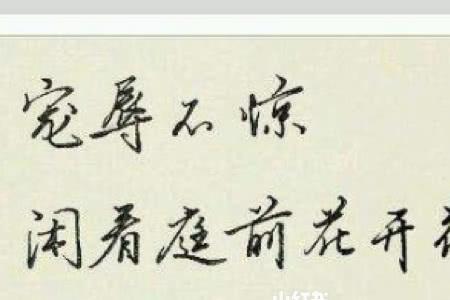 宠辱不惊
闲看庭前花开